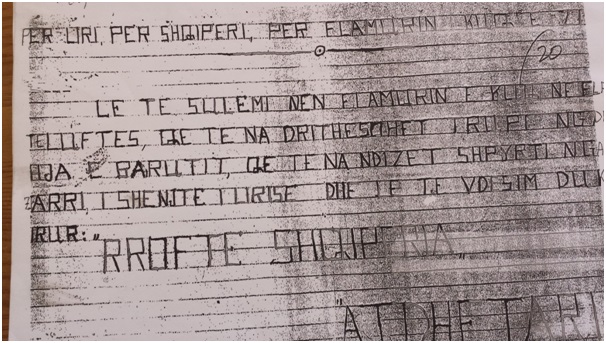 PER LIRI, PER SHQIPERI, PER FLAMURIN KUQ E ZI
20
LE TE SULEMI NEN FLAMURIN E KUQ NE FLA
TE LUFTES, QE TE NA DRITHESOHET TRUPI
E BARUTIT, QE TE NA NDIZET SHPYRTI NGA
ZARRI I SHENJTE I LIRISE DHE LE TE VDISIM DUK
RROFTE SHQIPERIA"
"ATDHETARI